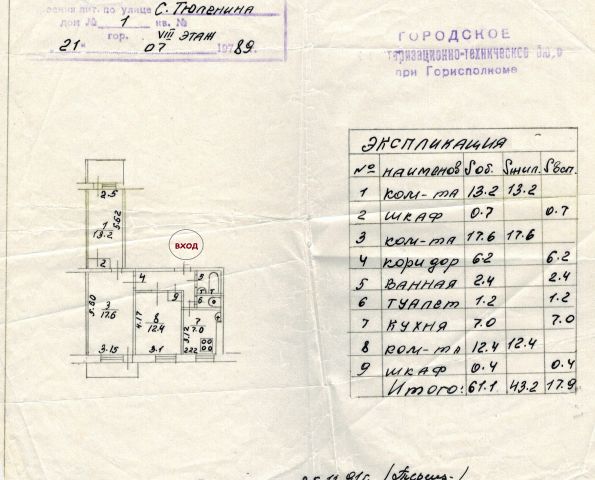 по улице С. Тюленина
дом № 1 кв. №
гор. VIII этаж
"21" 07 1989.
ГОРОДСКОЕ
при Горисполкоме
ЭКСПЛИКАЦИЯ
№ наименов Sоб. Sжил. Sвсп.
1 ком-та 13.2 13.2
2 шкаф 0.7 0.7
3 ком-та 17.6 17.6
4 коридор 6.2 6.2
5 ванная 2.4 2.4
6 туалет 1.2 1.2
7 кухня 7.0 7.0
8 ком-та 12.4 12.4
9 шкаф 0.4 0.4
Итого: 61.1 43.2 17.9
2.5
1
13.2
5.62
2
ВХОД
4
5
9
6
3
17.6
5.60
4.17
8
12.4
7
7.0
3.12
3.15
3.1
2.22